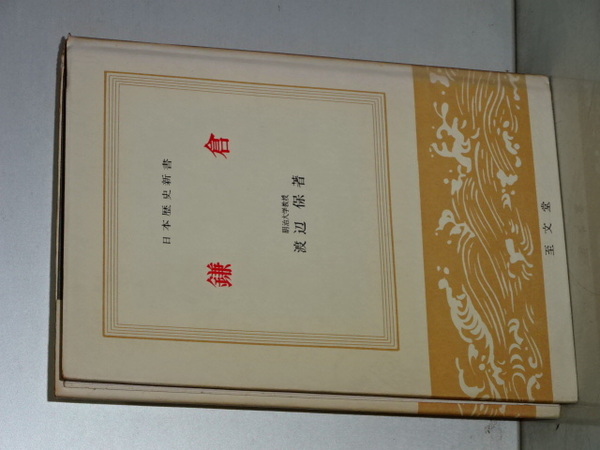 日本歴史新書
鎌倉
明治大学教授
渡辺保著
至文堂